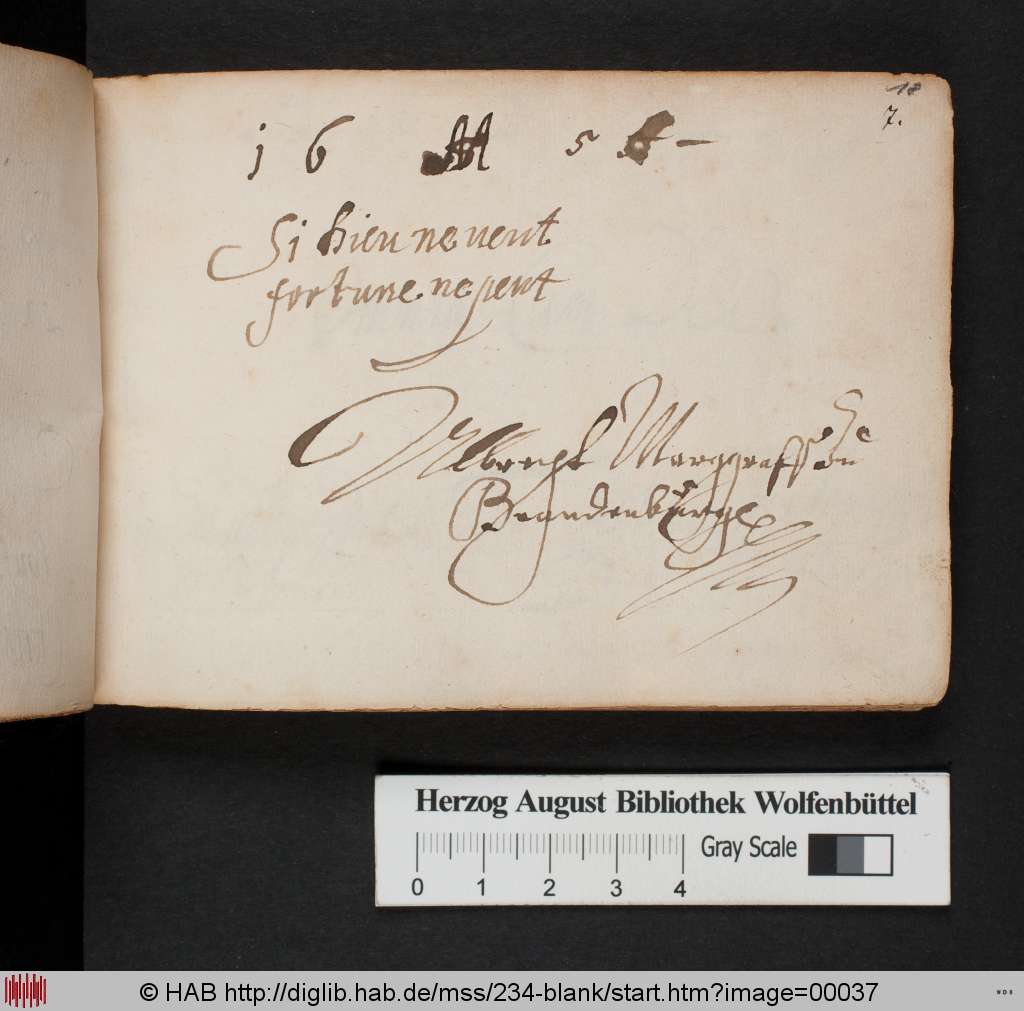 18
7.
16 M 5
Si hieu ne veut
fortune ne peut
Albrecht Marggraff zu
Brandenburg
Herzog August Bibliothek Wolfenbüttel
Gray Scale
0 1 2 3 4
© HAB http://diglib.hab.de/mss/234-blank/start.htm?image=00037